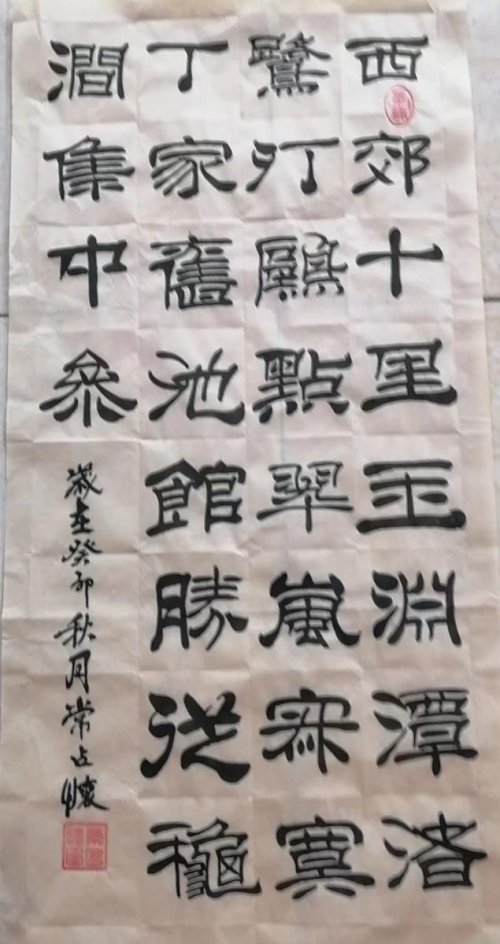 西郊十里玉淵潭渚
鷺汀鷗點翠嵐寂寞
丁家舊池館勝從龝
澗集中參
歲在癸卯秋月常占懷